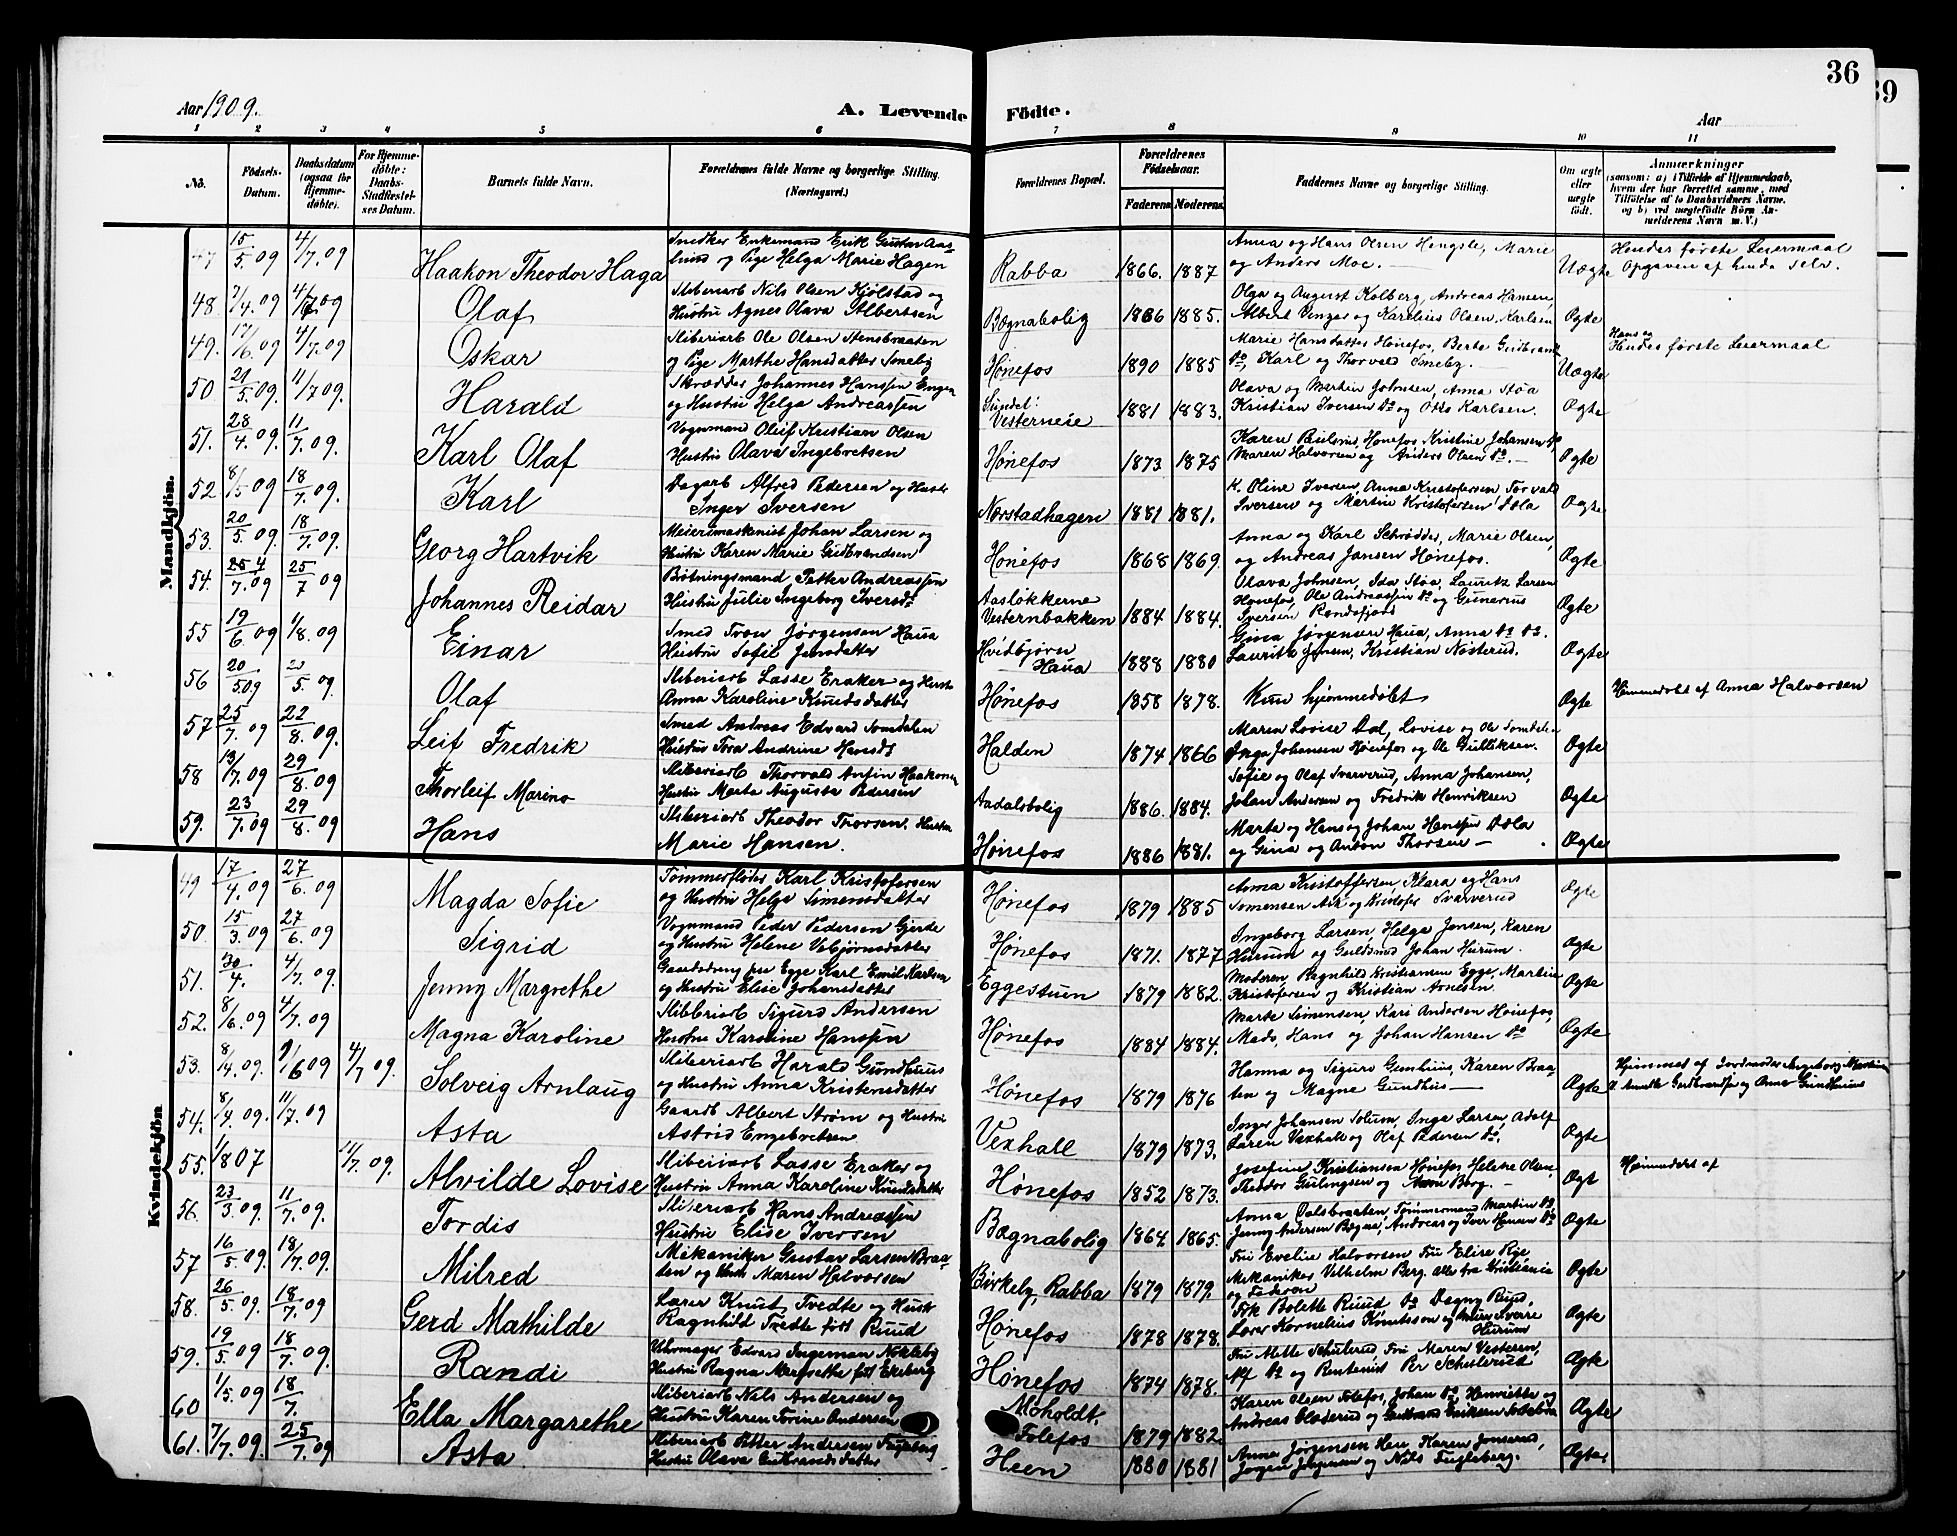 36
39
Aar 1909.
A. Levende Födte.
Aar
1 2 3 4 5 6 7 8 9 10 11
No.
Födsels-Datum.
Daabsdatum (ogsaa for Hjemme-døbte).
For Hjemme-døbte: Daabs-Stadfæstel-ses Datum.
Barnets fulde Navn.
Forældrenes fulde Navne og borgerlige Stilling. (Næringsvei.)
Forældrenes Bopæl.
Forældrenes Födselsaar.
Faderens Moderens
Faddernes Navne og borgerlige Stilling.
Om ægte eller uægte født.
Anmærkninger
(saasom: a) i Tilfælde af Hjemmedaab, hvem der har forrettet samme, med Tilföielse af to Daabsvidners Navne, og b) ved uægtefödte Börn An-melderens Navn m. V.)
Mandkjön.
47 15/5 09 4/7 09 Haakon Theodor Haga
Snedker Enkemand Erik Gustav Aas-
lund og Pige Helga Marie Hagen
Rabba 1866. 1887
Anna og Hans Olsen Hengsle, Marie
og Anders Moe.
Uægte
Hendes første Leiermaal
Opgaven af hende selv.
48 7/4 09 Olaf
Sliberiarb Nils Olsen Kjølstad og
Hustru Agnes Olava Albertsen
Bægnabolig 1886 1885.
Olga og August Kolberg, Andreas Hansen,
Albert og Karelius Olsen, Karlsen
Ægte
49. 17/6 09 4/7 09 Oskar
Sliberiarb Ole Olsen Stensbraaten
og Pige Marthe Hansdatter Smeby
Hønefos 1890 1885
Marie Hansdatter Hønefos, Berte Gulbrand
do, Karl og Thorvald Smeby.
Uægte
Hans og
Hendes første Leiermaal
50 21/5 09. 11/7 09 Harald
Skrædder Johannes Hanssen Engen
og Hustru Helga Andreassen
Sundet: Vesterneie 1881 1883.
Olava og Martin Johnsen, Anna Støa
Kristian Iversen do og Otto Karlsen.
Ægte
51. 28/4 09. 11/7 09. Karl Olaf
Vognmand Oluf Kristian Olsen
Hustru Olava Ingebretsen
Hønefos 1873 1875
Karen Hønefos Kristine Johansen do
Maren Halvorsen og Anders Olsen do.
Ægte
52. 8/5 09 18/7 09. Karl
Dagarb Alfred Pedersen og Hustr
Inger Iversen
Nærstadhagen 1881 1881.
K. Oline Iversen, Anna Kristofersen, Torvald
Iversen og Martin Kristofersen Dola
Ægte
53. 20/5 09. 18/7 09. Georg Hartvik
Meierimaskinist Johan Larsen og
Hustru Karen Marie Gulbrandsen
Hønefos 1868 1869.
Anna og Karl Schrødder, Marie Olsen,
og Andreas Jansen Hønefos.
Ægte
54. 7. 09 25/7 09 Johannes Reidar
Petter Andreassen
Hustru Julie Ingeborg Iversdr
Aasløkkerne Vesternbakken 1884 1884.
Olava Johnsen, Ida Støa, Lauritz Larsen
Hønefos, Ole Andreassen do og Gunerius
Iversen Randsfjord
Ægte
55 19/6 09 1/8 09 Einar
Smed Tron Jørgensen Haua
Hustru Sofie Jensdatter
Hvidbjørn Haua 1888 1880
Gina Jørgensen Haua, Anna do do.
Lauritz Jensen, Kristian Nøsterud.
Ægte
56 20/5 09 5. 09. Olaf
Sliberiarb Lasse Eraker og Hustr
Anna Karoline Knudsdatter
Hønefos 1858 1878.
Kun hjemmedøbt
Ægte
Hjemmedøbt af Anna Halvorsen
57 25/7. 09 22/8. 09. Leif Fredrik
Smed Andreas Edvard Somdalen
Hustru Tora Andrine Hansdr
Halden 1874 1866
Maren Lovise Dal, Lovise og Ole Somdalen
Inga Johansen Hønefos og Ole Gulliksen.
Ægte
58 13/7. 09 29/8. 09 Thorleif Marino
Sliberiarb Thorvald Anfin Haakonsen
Hustru Marta Augusta Pedersen
Aadalsbolig 1886. 1884.
Sofie og Olaf Svarverud, Anna Johansen,
Johan Andersen og Fredrik Henriksen
Ægte
59. 23/7. 09 29/8. 09 Hans
Sliberiarb Theodor Thorsen, Hustru
Marie Hansen.
Hønefos 1886 1881.
Marta og Hans og Johan Hanssen Dola
og Gina og Anton Thorsen
Ægte
Kvindekjön
49 17/4. 09 27/6. 09 Magda Sofie
Tømmerfløder Karl Kristofersen
og Hustru Helga Simensdatter
Hønefos 1879 1885
Anna Kristoffersen, Klara og Hans
Simensen Ask og Kristofer Svarverud
Ægte
50 15/3. 09 27/6. 09 Sigrid
Vognmand Peder Pedersen Gjerde
og Hustru Helene Vebjørnsdatter
Hønefos 1871. 1877
Ingeborg Larsen, Helga Jensen, Karen
Hurum og Guldsmed Johan Hurum.
Ægte
51. 30/4. 4/7. 09. Jenny Margrethe
Gaardsdreng paa Egge Karl Emil Karlsen
og Hustru Elise Johansdatter
Eggestuen 1879 1882.
Moderen, Ragnhild Kristiansen Egge, Martin
Kristofersen og Kristian Arnesen.
Ægte
52. 8/6. 09 4/7. 09 Magna Karoline
Slibberiarb Sigurd Andersen
Hustru Karoline Hanssen
Hønefos 1884 1884.
Marte Simensen, Kari Andersen Hønefos,
Mads, Hans og Johan Hansen do
Ægte
53. 8/14. 09. 9/6 09 4/7 09. Solveig Arnlaug
Sliberiarb Harald Gundhuus
og Hustru Anna Kristensdatter
Hønefos 1879 1876
Hanna og Sigurd Gundhus, Karen Braa-
ten og Magne Gundhus
Ægte
Hjemmed af Jordmoder Ingeborg
54. 8/4. 09. 11/7. 09 Asta
Gaardb Albert Strøm og Hustru
Astrid Engebretsen
Vexhall 1879 1873.
Inger Johansen Solum, Inga Larsen, Adolf
Larsen Vexhall og Olaf Pedersen do.
Ægte
55. 1/8 07 11/7. 09. Alvilde Lovise
Sliberiarb Lasse Eraker og
Hustru Anna Karoline Knudsdatter
Hønefos 1852 1873.
Josefine Kristiansen Hønefos Helene Olsen,
Theodor Gulingsen og Berg.
Ægt
Hjemmedøbt af
56. 23/3. 09. 11/7. 09. Tordis
Sliberiarb Hans Andreassen
Hustru Elise Iversen
Bægnabolig 1864 1865.
Anna Dalsbraaten, Tømmermand Martin do
Jenny Andersen Bægna, Andreas og Iver Hansen do
Ægte
57 16/5. 09. 18/7. 09. Milred
Mekaniker Gustav Larsen Braa-
ten og Hustr Maren Halvorsen
Birkely, Rabba 1879 1879.
Fru Evelie Halvorsen Fru Elise Rye
Mekaniker Vilhelm Berg. Alle fra Kristiania
og Faderen
Ægte
58. 26/5. 09. 18/7. 09 Gerd Mathilde
Lærer Knut Tvedte og Hustr
Ragnhild Tvedte født Ruud
Hønefos 1878 1878.
Frk Bolette Ruud, do Dagny Ruud,
Lærer Kornelius Knutsson og Sverre
Hurum
Ægte
59. 19/5. 09 18/7. 09. Randi
Uhrmager Edvard Ingeman Nøkleby
Hustru Ragna Margrethe født Ekeberg
Hønefos 1874 1878.
Fru Mette Schulerud, Fru Maren Vesteren,
Alf do og Rentenist Per Schulerud
Ægte
60 1/5. 09 18/7. Ella Margarethe
Sliberiarb Nils Andersen og
Hustru Karen Torine Andersen
Moholdt, Folefos 1879 1882.
Karen Olsen Folefos, Johan do, Henriette og
Andreas og Gulbrand Eriksen
Ægte
61. 7/7. 09. 25/7. 09 Asta
Sliberiarb Petter Andersen Fugleberg
Hustru Olava Gulbrandsdatter
Heen 1880 1881
Anna Jørgensen Hen, Karen Jonsrud,
Jørgen Jørgensen og Nils Fugleberg.
Ægte